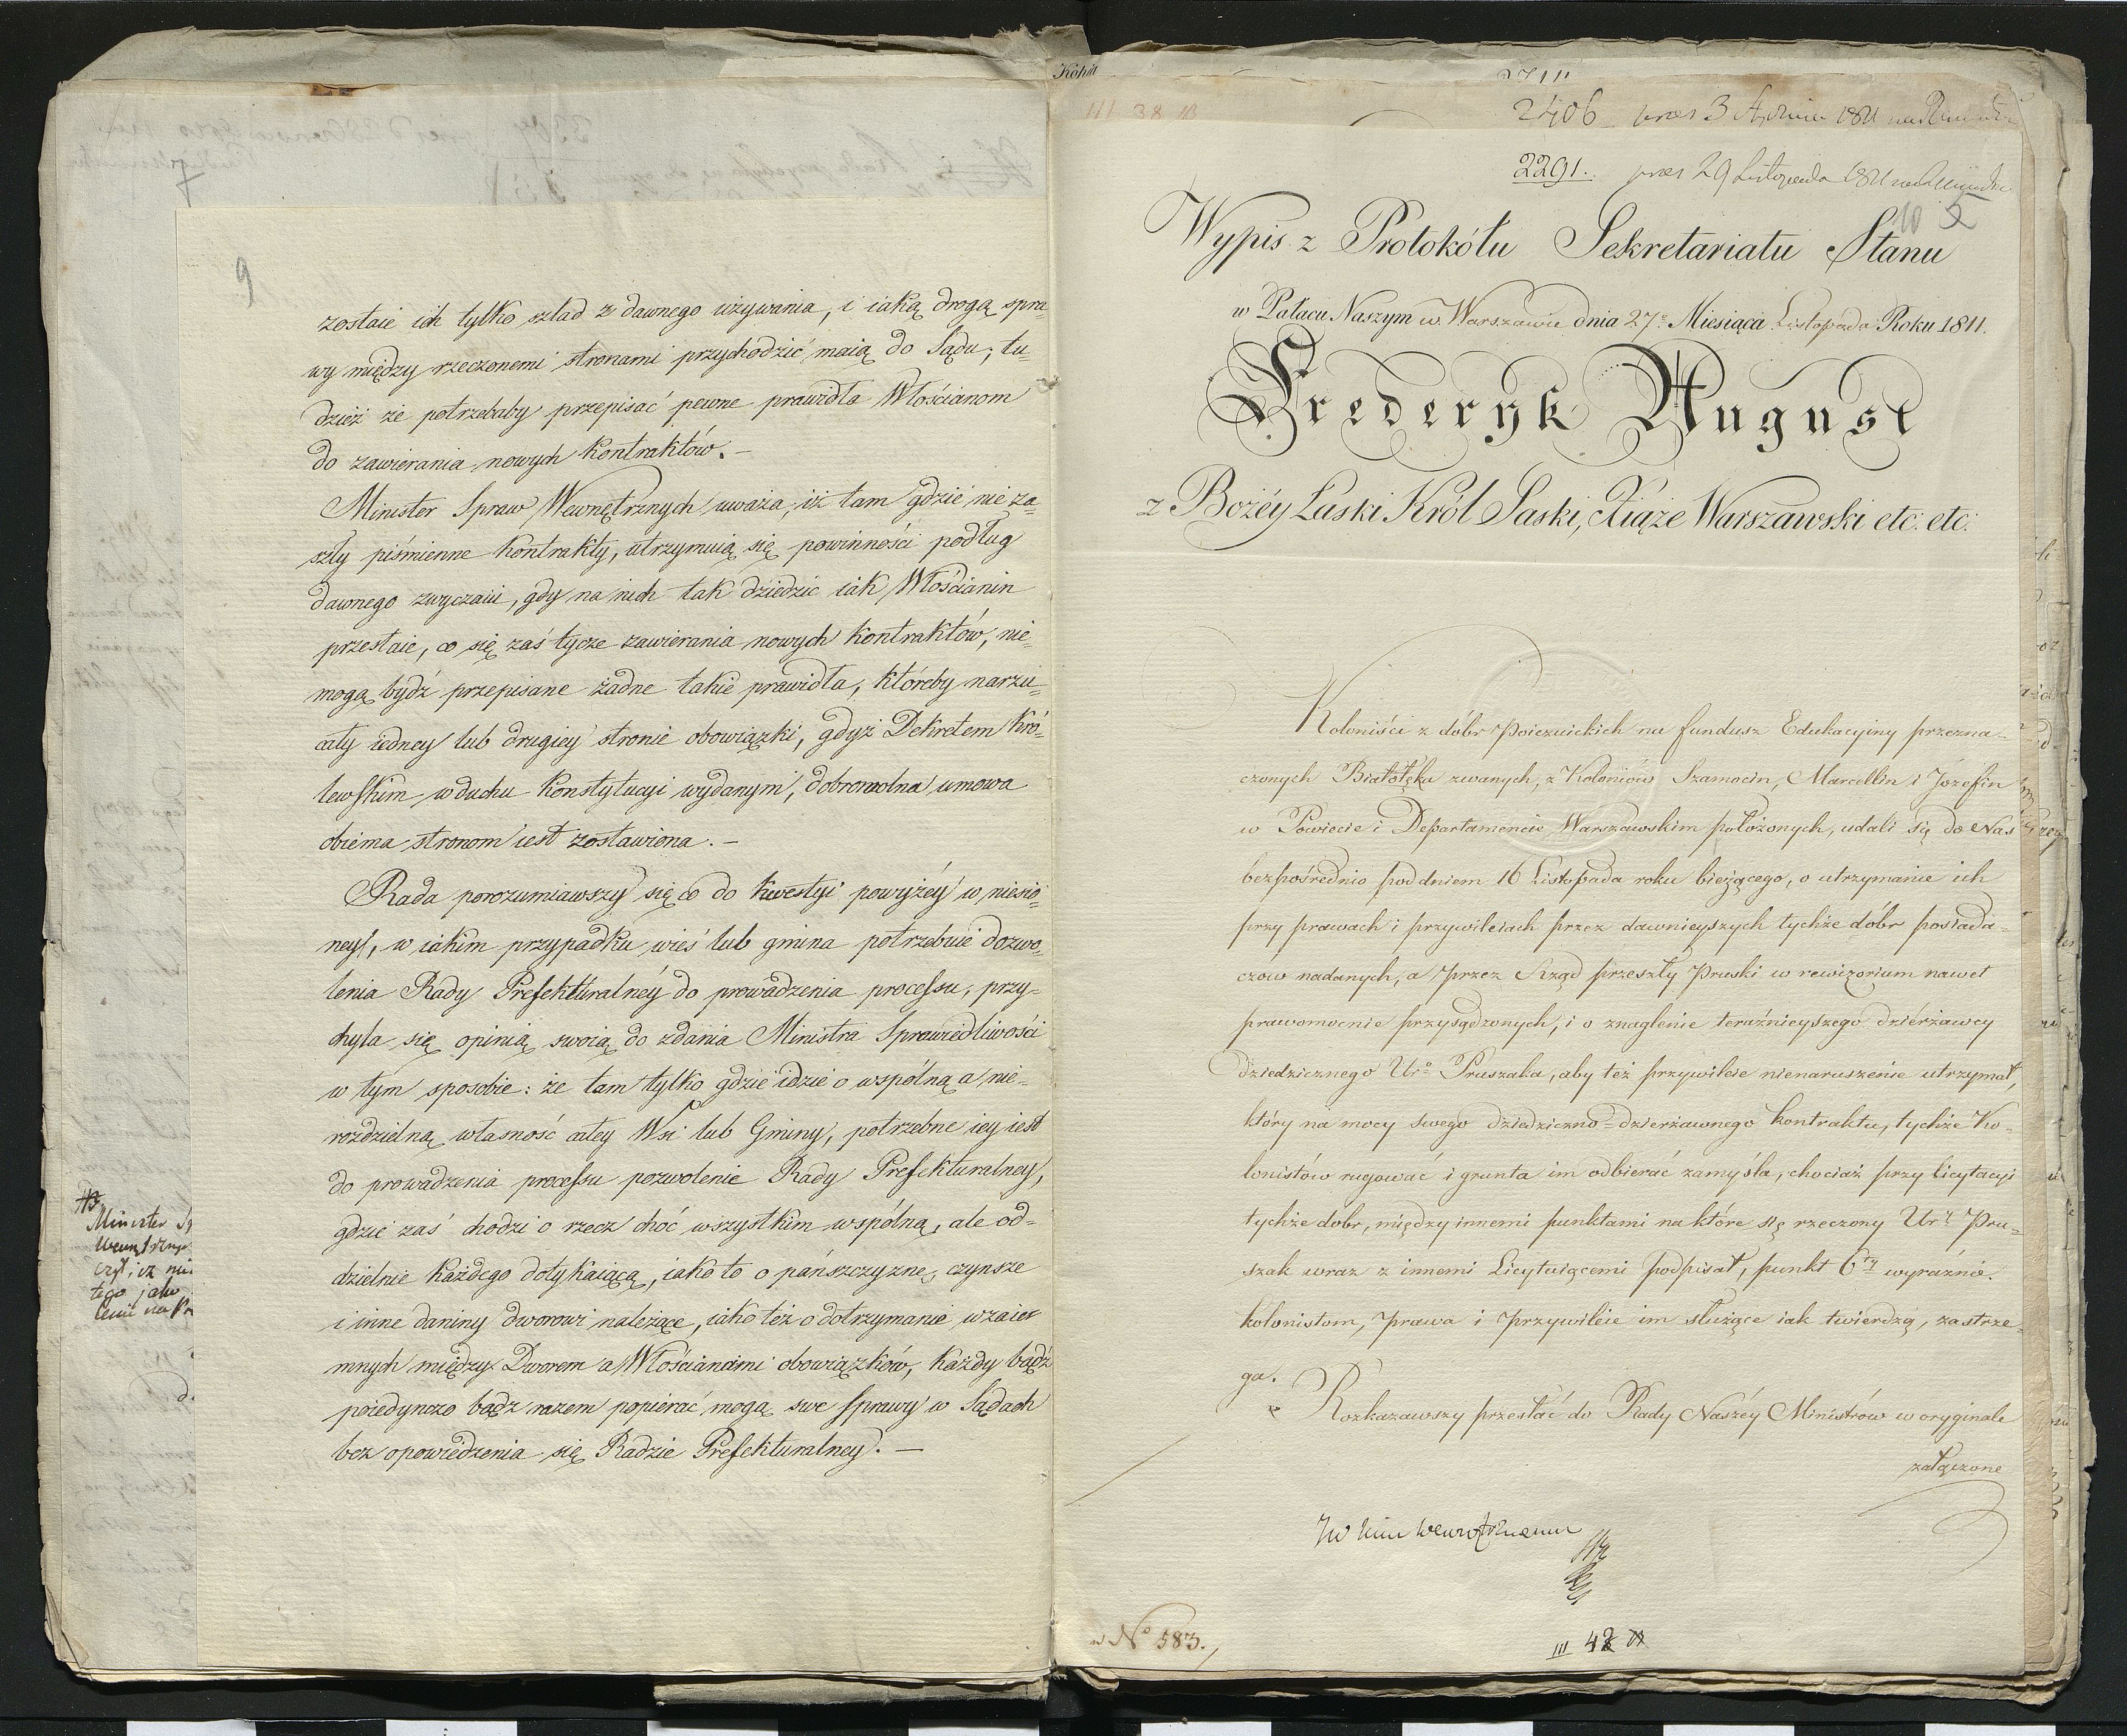 9
zostaie ich tylko szlad z dawnego używania, i iaką drogą spra=
wy między rzeczonemi stronami przychodzić maią do Sądu; tu=
dzież że potrzebaby przepisać pewne prawidła Włościanom
do zawierania nowych Kontraktów. –
Minister Spraw Wewnętrznych uważa, iż tam gdzie nie za=
szły piśmienne Kontrakty, utrzymuią się powinności podług
dawnego zwyczaiu, gdy na nich tak dziedzic iak Włościanin
przestaie, co się zaś tycze zawierania nowych Kontraktów, nie=
mogą bydź przepisane żadne takie prawidła, któreby narzu=
cały iedney lub drugiey stronie obowiązki, gdyż Dekretem Kró=
lewskim w duchu Konstytucyi wydanym, dobrowolna umowa
obiema stronom iest zostawiona. –
Rada porozumiawszy się co do kwestyi powyżéy w niesio=
ney, w iakim przypadku wieś lub gmina potrzebuie dozwo=
lenia Rady Prefekturalnéy do prowadzenia processu, przy=
chyla się opinią swoią do zdania Ministra Sprawiedliwości
w tym sposobie: że tam tylko gdzie idzie o wspólną a nie=
rozdzielną własność całey Wsi lub Gminy, potrzebne iey iest
do prowadzenia processu pozwolenie Rady Prefekturalney,
gdzie zaś chodzi o rzecz choć wszystkim wspólną, ale od=
dzielnie każdego dotykaiącą, iako to o pańszczyznę, czynsze
i inne daniny dworowi należące, iako też o dotrzymanie wzaie
mnych między Dworem a Włościanami obowiązków, każdy bądź
poiedynczo bądź razem popierać mogą swe sprawy w Sądach
bez opowiedzenia się Radzie Prefekturalney. –
Minister Sp
tego jako
2406
przez 3
1811
2291.
przez 29 Listopada 1811
10 5
Wypis z Protokółu Sekretariatu Stanu
w Pałacu Naszym w Warszawie dnia 27º Miesiąca Listopada Roku 1811.
Frederyk August
z Bożéy Łaski Król Saski, Xiąże Warszawski etc: etc:
Koloniści z dóbr Poiezuickich na fundusz Edukacyiny przezna=
czonych Białołęka zwanych, z Koloniów Szamocin, Marcellin i Józefin
w Powiecie i Departamencie Warszawskim położonych, udali się do Nas
bezpośrednio pod dniem 16 Listopada roku bieżącego, o utrzymanie ich
przy prawach i przywileiach przez dawnieyszych tychże dóbr posiada=
czow nadanych, a przez Rząd przeszły Pruski w rewizorium nawet
prawomocnie przysądzonych, i o znaglenie teraźnieyszego dzierżawcy
dziedzicznego Urº Pruszaka, aby też przywileie nienaruszenie utrzymał,
który na mocy swego dziedziczno=dzierżawnego kontraktu, tychże Ko=
lonistów rugować i grunta im odbierać zamyśla, chociaż przy licytacyi
tychże dóbr, między innemi punktami na które się rzeczony Urº Pru=
szak wraz z innemi Licytuiącemi podpisał, punkt 6ty wyraźnie
kolonistom, prawa i przywileie im służące iak twierdzą, zastrze=
ga.
Rozkazawszy przesłać do Rady Naszéy Ministrów w oryginale
załączone
Nº 583.
III 42